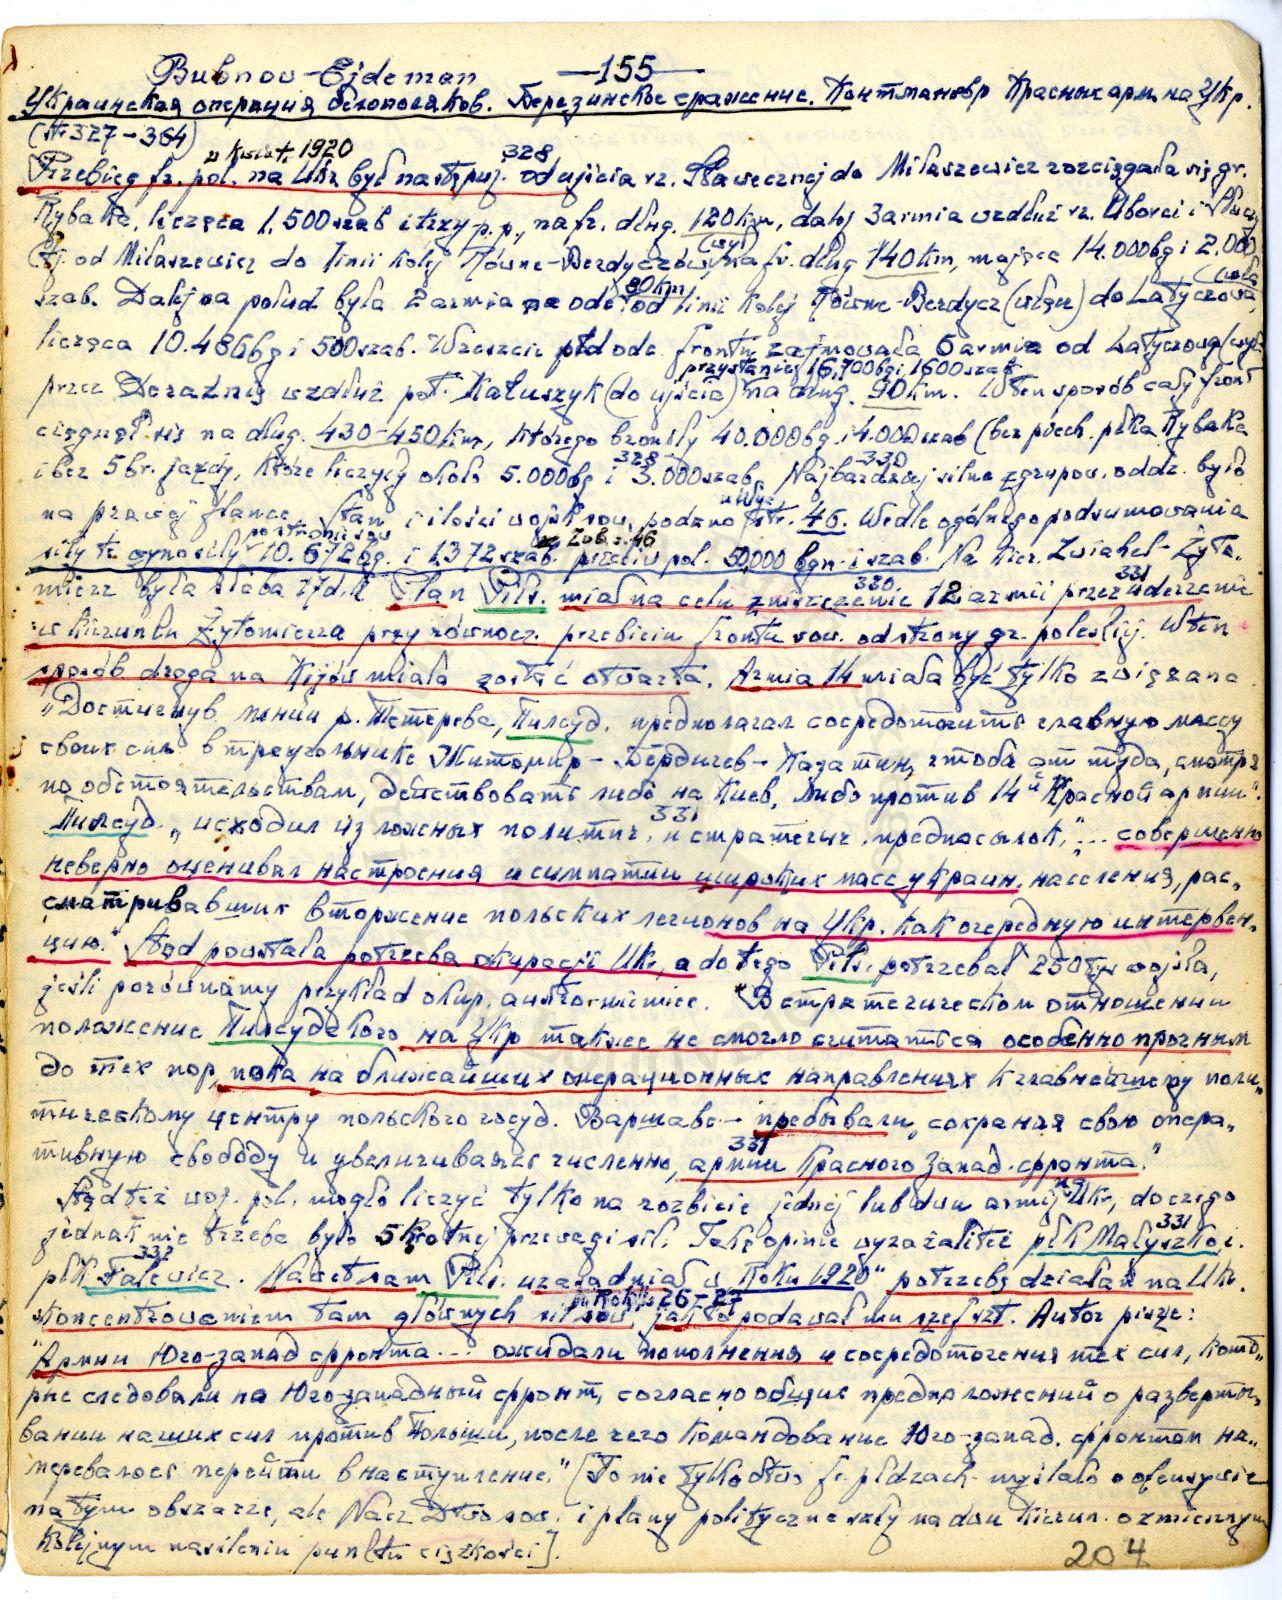 Bubnow-Ejdeman —155—
Украинская операция белополяков. Березинское сражение. Контманевр Красных арм. на Укр.
(St. 327-364)
w kwiet. 1920 328
Przebieg fr. pol. na Ukr. był następuj. od ujścia rz. Sławecznej do Milaszewicz rozciągała się gr.
Rybaka, licząca 1.500 szab i trzy p.p., na fr. dług. 120 km, dalej 3 armia wzdłuż rz. Uborci i Słucz
(tj. od Milaszewicz do linii kolej Równe-Berdyczów (wył) na fr. dług 140 km, mająca 14.000 bg i 2.000
szab. Dalej na połud była 2 armia na odc. 80 km od linii kolej Równe-Berdycz (włącz) do Latyczowa, (włą)
licząca 10.486 bg i 500 szab. Wreszcie płd odc. frontu zajmowała 6 armia od Latyczowa (wył)
przystanie 16,700 bg i 1600 szab.
przez Derażnię wzdłuż pot. Kałuszyk (do ujścia) na dług. 90 km. W ten sposób cały front
ciągnął się na dług. 430-450 km, którego broniły 40.000 bg. i 4.000 szab (bez piech. płka Rybaka
328 330
i bez 5 br. jazdy, które liczyły około 5.000 bg i 3.000 szab. Najbardziej silne zgrupow. oddz. było
na prawej flance. Stan i ilości wojsk sow. podano str. 46. Wedle ogólnego podsumowania
po stronie sow. Zob. s. 46
siły te wynosiły 10.672 bg. i 1372 szab. przeciw pol. 50,000 bgn. i szab. Na kier. Zwiahel-Żyto-
330. 331
mierz była słaba 17 d. Plan Piłs. miał na celu zniszczenie 12 armii przez uderzenie
w kierunku Żytomierza przy równocz. przebiciu frontu sow. od strony gr. poleskiej. W ten
sposób droga na Kijów miała zostać otwarta. Armia 14 miała być tylko związana
„Достигнув линии р. Тетерева, Пилсуд. предполагал сосредоточить главную массу
своих сил в треугольнике Житомир - Бердичев - Казатин, чтоба от туда, смотря
по обстоятельствам, действовать либо на Киев, либо против 14й Красной армии".
331
Пилсуд. „исходил из ложных политич. и стратегич. предпосылок," ... совершенно
неверно оценивал настроения и симпатии широких масс украин. населения, рас-
сматривавших вторжение польских легионов на Укр. как очередную интервен-
цию." Stąd powstała potrzeba okupacji Ukr., a do tego Piłs. potrzebał 250 tys wojska,
jeśli porównamy przykład okup. austro-niemiec. "В стратегическом отношении
положение Пилсудского на Укр также не смогло считаться особенно прочным
до тех пор, пока на ближайших операционных направлениях к главнейшему поли-
тическому центру польского госуд. Варшаве — пребывали, сохраняя свою опера-
331
тивную свободу и увеличиваясь численно, армии Красного Запад. фронта."
Stąd też woj. pol. mogło liczyć tylko na rozbicie jednej lub dwu armij na Ukr., do czego
331
jednak nie trzeba było 5 krotnej przewagi sił. Taką opinię wyrażali też płk Małyszko, i
332
płk Falewicz. Nawet sam Piłs. uzasadniał w „Roku 1920" potrzebę działań na Ukr.
Rok 26-27
koncentrowaniem tam głównych sił sow. jak to podawał mu szef szt. Autor pisze:
"Армии Юго-запад фронта ... ожидали пополнения и сосредоточения тех сил, кото-
рые следовали на Юго-западный фронт, согласно общих предположений о разверты-
вании наших сил против Польши, после чего командование Юго-запад. фронтом на-
меревалось перейти в наступление." [To nie tylko dtwo fr. płdzach. myślało o ofensywie
na tym obszarze, ale Nacz Dtwo sow. i plany polityczne szły na dwu kierun. o zmiennym
kolejnym nasileniu punktu ciężkości].
204